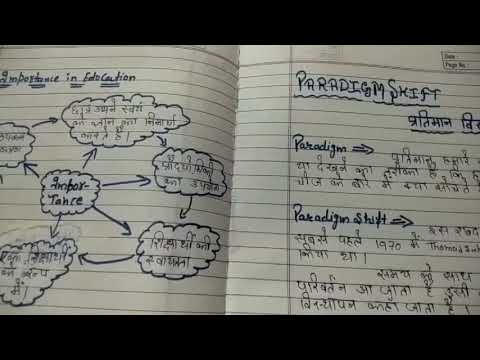 Importance in Education
छात्र अपने स्वयं
के ज्ञान का निर्माण
करते हैं।
प्रौद्योगिकी
का उपयोग
Impor-
tance
शिक्षार्थी की
स्वायत्तता
शिक्षार्थी
के रूप
में
Date :
Page No :
PARADIGM SHIFT
प्रतिमान
Paradigm ⇒ प्रतिमान हमारे
या देखने का तरीका है कि
चीज के बारे में क्या सोचते
Paradigm Shift ⇒ इस शब्द
सबसे पहले 1970 में Thomas
किया था।
समय के साथ
परिवर्तन आ जाता है इसी
विस्थापन कहा जाता है।